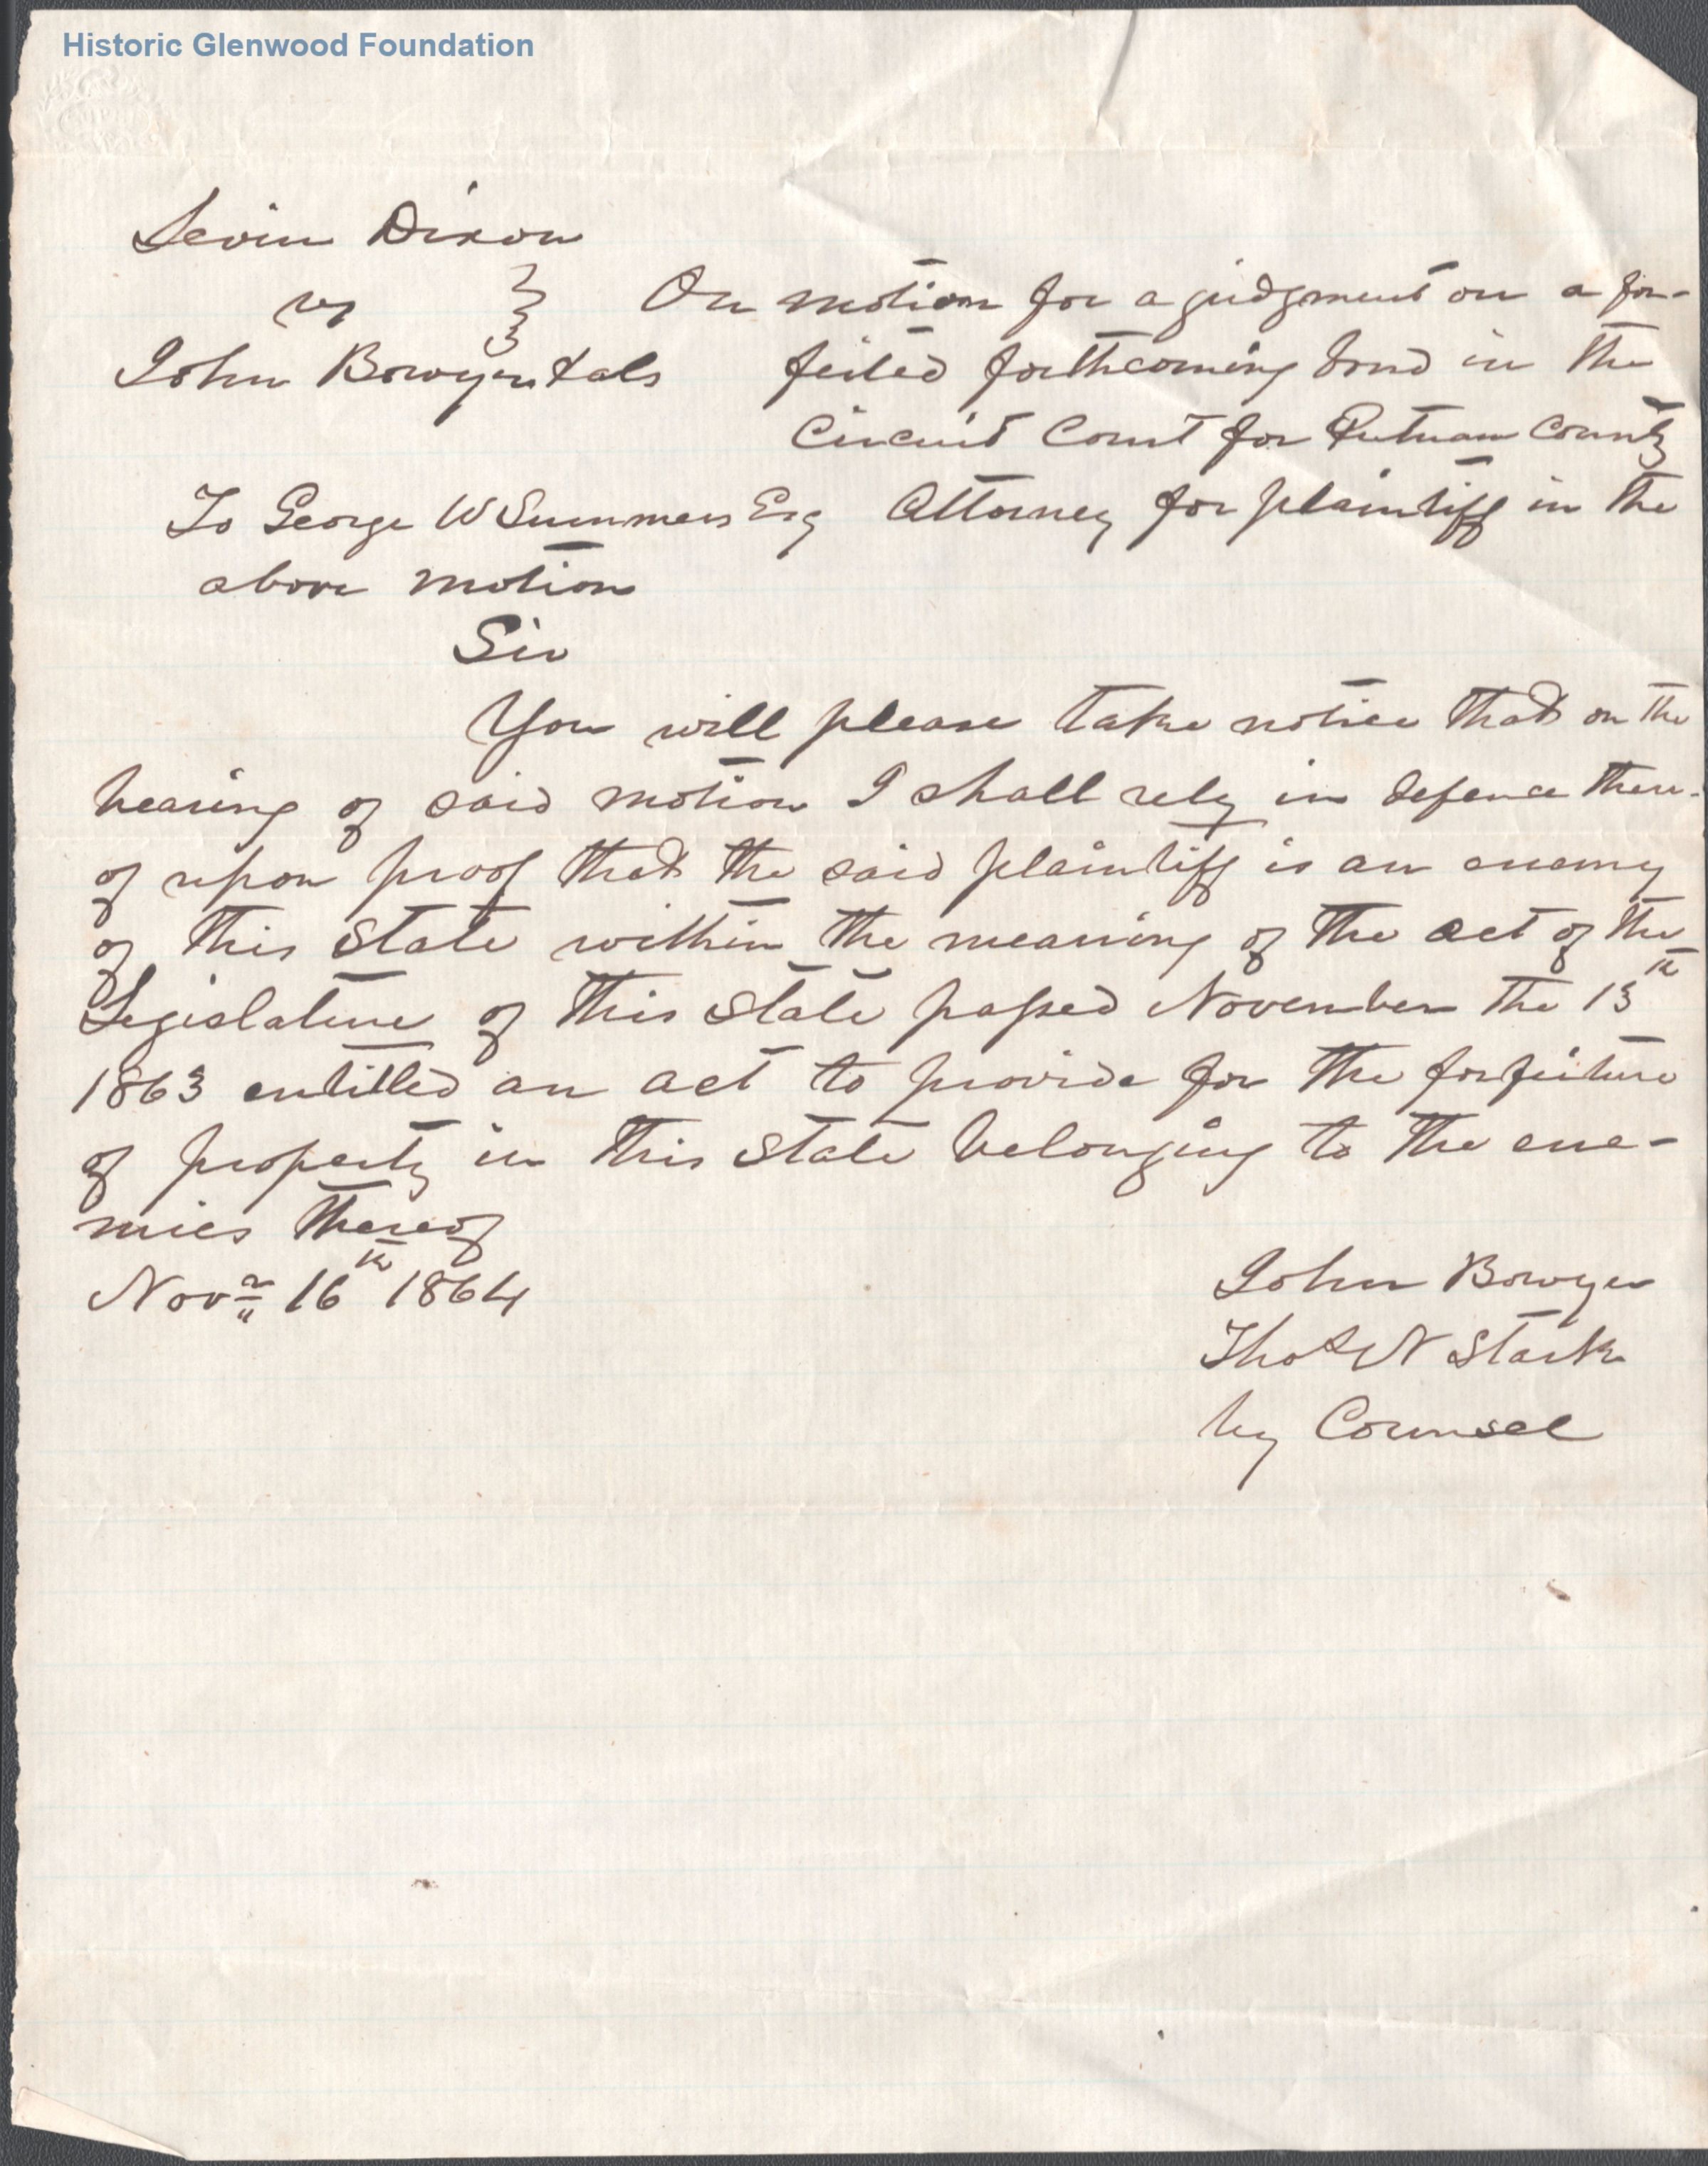 Historic Glenwood Foundation
Levin Dixon
vs } On motion for a judgment on a for-
John Bowyer & als feited forthcoming bond in the
Circuit Court for Putnam County
To George W Summers Esq Attorney for plaintiff in the
above motion
Sir
You will please take notice that on the
hearing of said motion I shall rely in defence there-
of upon proof that the said plaintiff is an enemy
of this State within the meaning of the act of the
Legislature of this State passed November the 13th
1863 entitled an act to provide for the forfeiture
of property in this State belonging to the ene-
mies thereof
Novr 16th 1864
John Bowyer
Thos N Stark
by Counsel